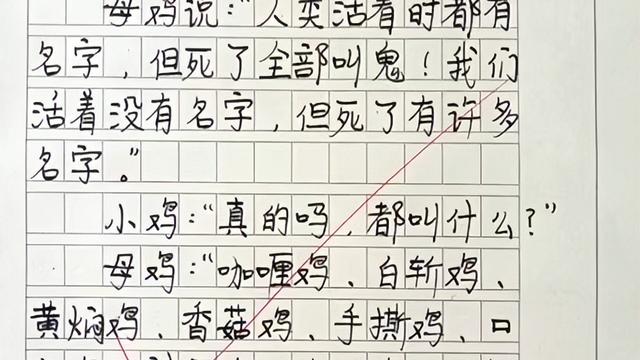 母鸡说：“人类活着时都有
名字，但死了全部叫鬼！我们
活着没有名字，但死了有许多
名字。”
小鸡：“真的吗，都叫什么？”
母鸡：“咖喱鸡、白斩鸡、
黄焖鸡、香菇鸡、手撕鸡、口